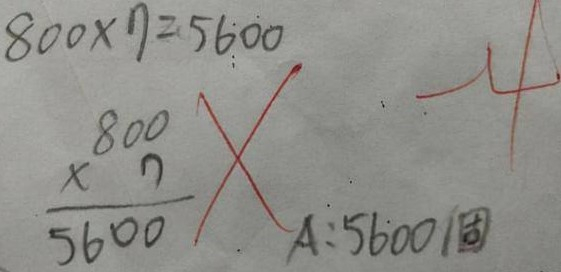 800×7=5600
800
× 7
5600
A:5600個
-4